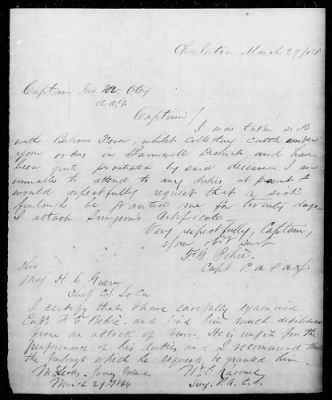 Charleston March 29/64
Captain Jno M. Otey
A.A.G.
Captain!
I was taken sick
with Bilious Fever, whilst collecting cattle under
your orders in Barnwell District, and have
been quite prostrated by said disease. I am
unable to attend to any duties at present &
would respectfully request that a sick
furlough be granted me for twenty days.
I attach Surgeon's Certificate
Very respectfully, Captain,
your obt servt
Capt
Thro
Maj H. C. Guerin
Chief C.S. So Ca
I certify that I have carefully examined
Capt. and find him much debilitated
from an attack of fever. He is unfit for the
performance of his duties and I recommend that
the furlough which he requests be granted him.
March 29 1864
Surg. P.A.C.S.